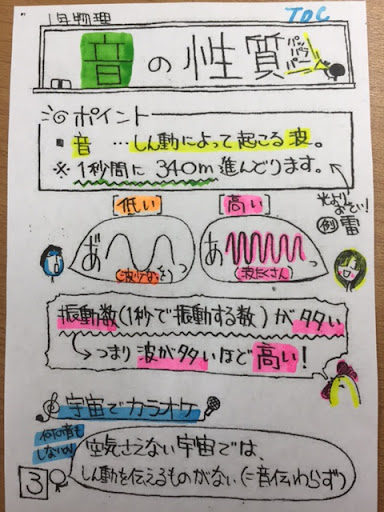 1年物理
TDC
音の性質
パッパラパー
ポイント
・音…しん動によって起こる波。
※1秒間に340m進んどります。
光よりおそい!
例 雷
低い
高い
あ゛ っ
あ っ
波少なめ
波たくさん
振動数(1秒で振動する数)が多い
→つまり波が多いほど高い!
宇宙でカラオケ
何の音もしないの
空気さえない宇宙では、
しん動を伝えるものがない(=音伝わらず)
3